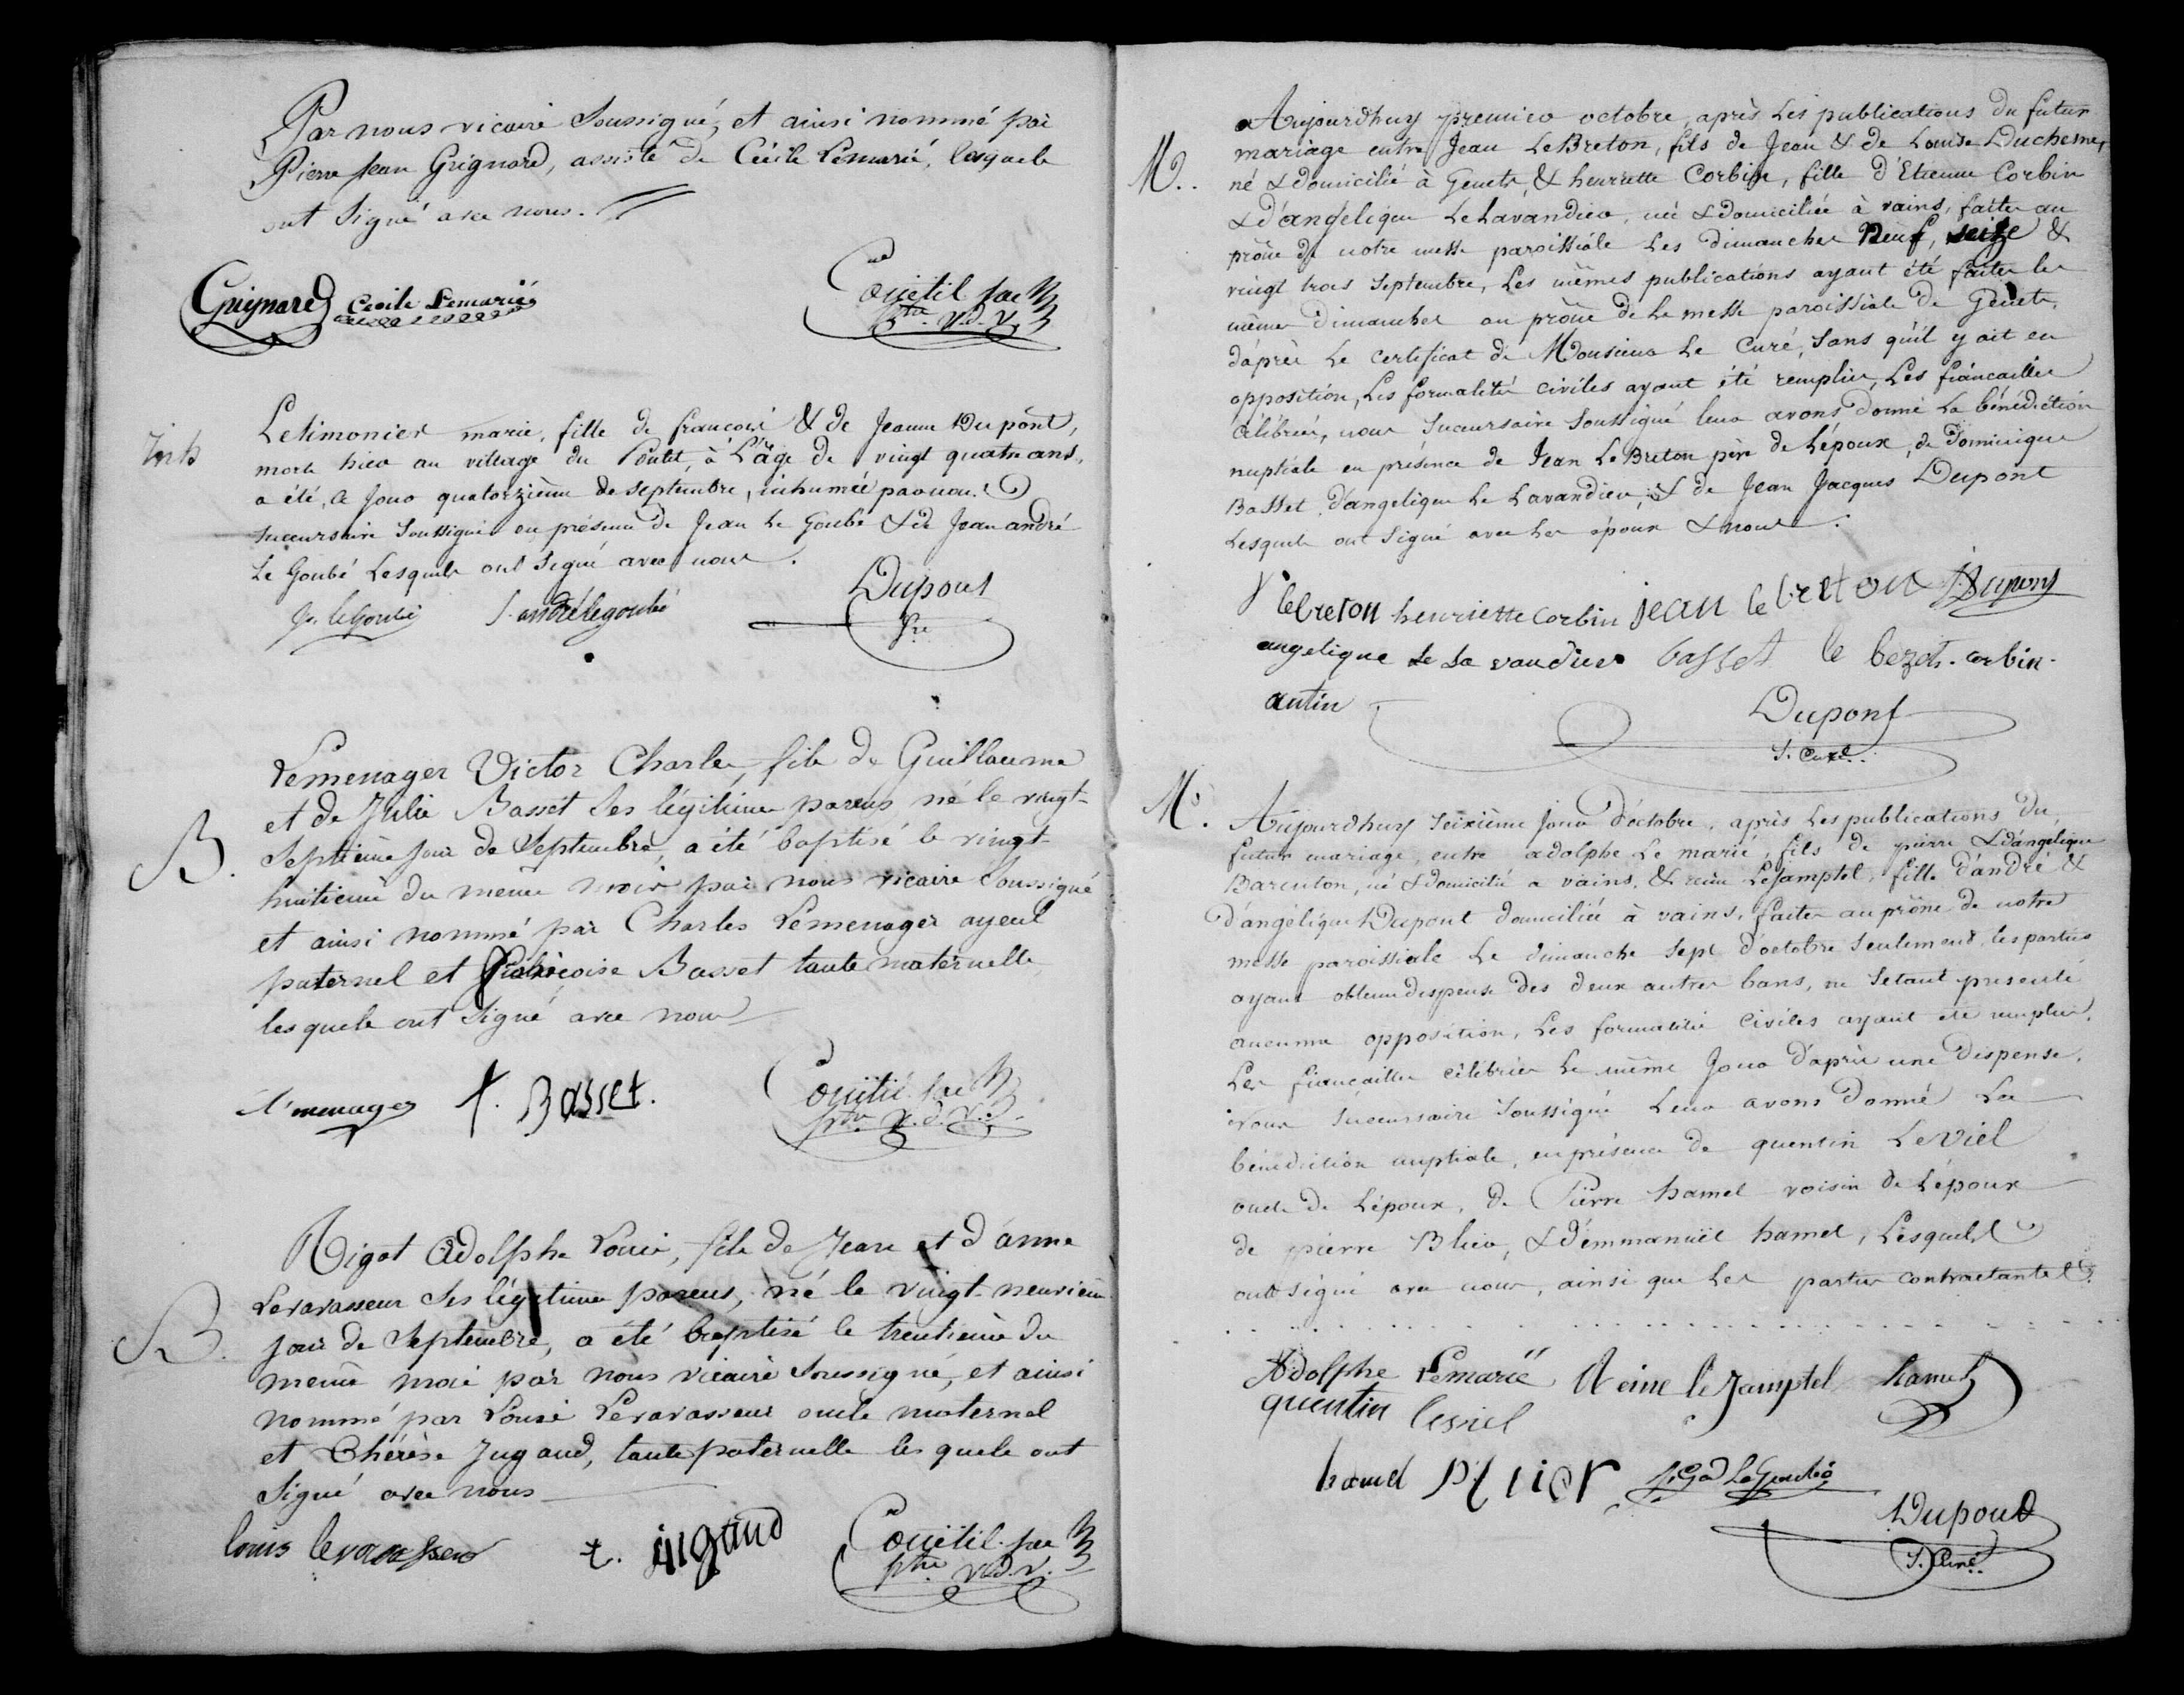 Par nous vicaire soussigné, et ainsi nommé par
Pierre Jean Grignard, assisté de Cécile Lemarié, lesquels
ont signé avec nous.
Grignard Cecile Lemarié
Couëtil
ptre v.d.V.
Inh
Letimonier marie, fille de françois & de Jeanne Dupont,
morte hier au village du Coulet, à L'âge de vingt quatre ans,
a été, ce jour quatorzième de septembre, inhumée par nous
succursaire soussigné en présence de Jean Le Goubé & de Jean andré
Le Goubé Lesquels ont signé avec nous.
J. legoubé J. andré legoubé Dupont
B.
Lemenager Victor Charles, fils de Guillaume
et de Julie Basset ses légitimes parens, né le vingt-
septième jour de Septembre, a été baptisé le vingt-
huitième du meme mois par nous vicaire soussigné
et ainsi nommé par Charles Lemenager ayeul
paternel et françoise Basset tante maternelle
lesquels ont signé avec nous
l'menager f. Basset. Couëtil
ptre v.d.V.
B.
Rigot Adolphe Louis, fils de Jean et d'anne
Levavasseur ses légitimes parens, né le vingt-neuvième
jour de Septembre, a été baptisé le trentieme du
meme mois par nous vicaire soussigné, et ainsi
nommé par Louis Levavasseur oncle maternel
et Thérèse Jugand, tante paternelle les quels ont
signé avec nous
louis levavasseur t. jugand Couëtil
ptre v.d.V.
M.
Aujourdhuy premier octobre, après Les publications du futur
mariage entre Jean LeBreton, fils de Jean & de Louise Duchesne,
né & domicilié à Genets, & henriette Corbin, fille d'Etienne Corbin
& d'angelique Le Lavandier, née & domiciliée à vains, faites au
prône de notre messe paroissiale Les dimanches neuf, seize &
vingt trois Septembre, Les mêmes publications ayant été faites les
mêmes Dimanches au prône de La messe paroissiale de Genets,
d'après Le certificat de Monsieur Le Curé, sans qu'il y ait eu
opposition, Les formalités civiles ayant été remplies, Les fiançailles
célébrées, nous succursaire soussigné leur avons donné La bénédiction
nuptiale en présence de Jean LeBreton père de L'époux, de Dominique
Basset, d'angelique Le Lavandier, & de Jean Jacques Dupont
Lesquels ont signé avec Les époux & nous.
lebreton henriette corbin jean le breton J. Dupont
angelique Le La vandier basset le bezots. corbin.
autin
Dupont
S. Curé.
M.
Aujourdhuy seizième jour d'octobre, après Les publications du
futur mariage, entre adolphe Le marié, fils de pierre & d'angelique
Barenton, né & domicilié a vains, & reine LeJamptel, fille d'andré &
d'angélique Dupont domiciliée à vains, faites au prône de notre
messe paroissiale Le dimanche sept d'octobre seulement, les parties
ayant obtenu dispense des deux autres bans, ne s'etant presenté
aucunne opposition, Les formalités civiles ayant été remplies,
Les fiançailles célébrées Le même jour d'après une dispense,
Nous succursaire soussigné Leur avons donné La
bénédiction nuptiale, en présence de quentin LeViel
oncle de L'époux, de Pierre hamel voisin de L'époux
de pierre Blier, & d'emmanuël hamel, Lesquels
ont signé avec nous, ainsi que Les parties contractantes.
Adolphe Lemarié Reine le Jamptel hamel
quentin leviel
hamel
Dupont
S. Curé.